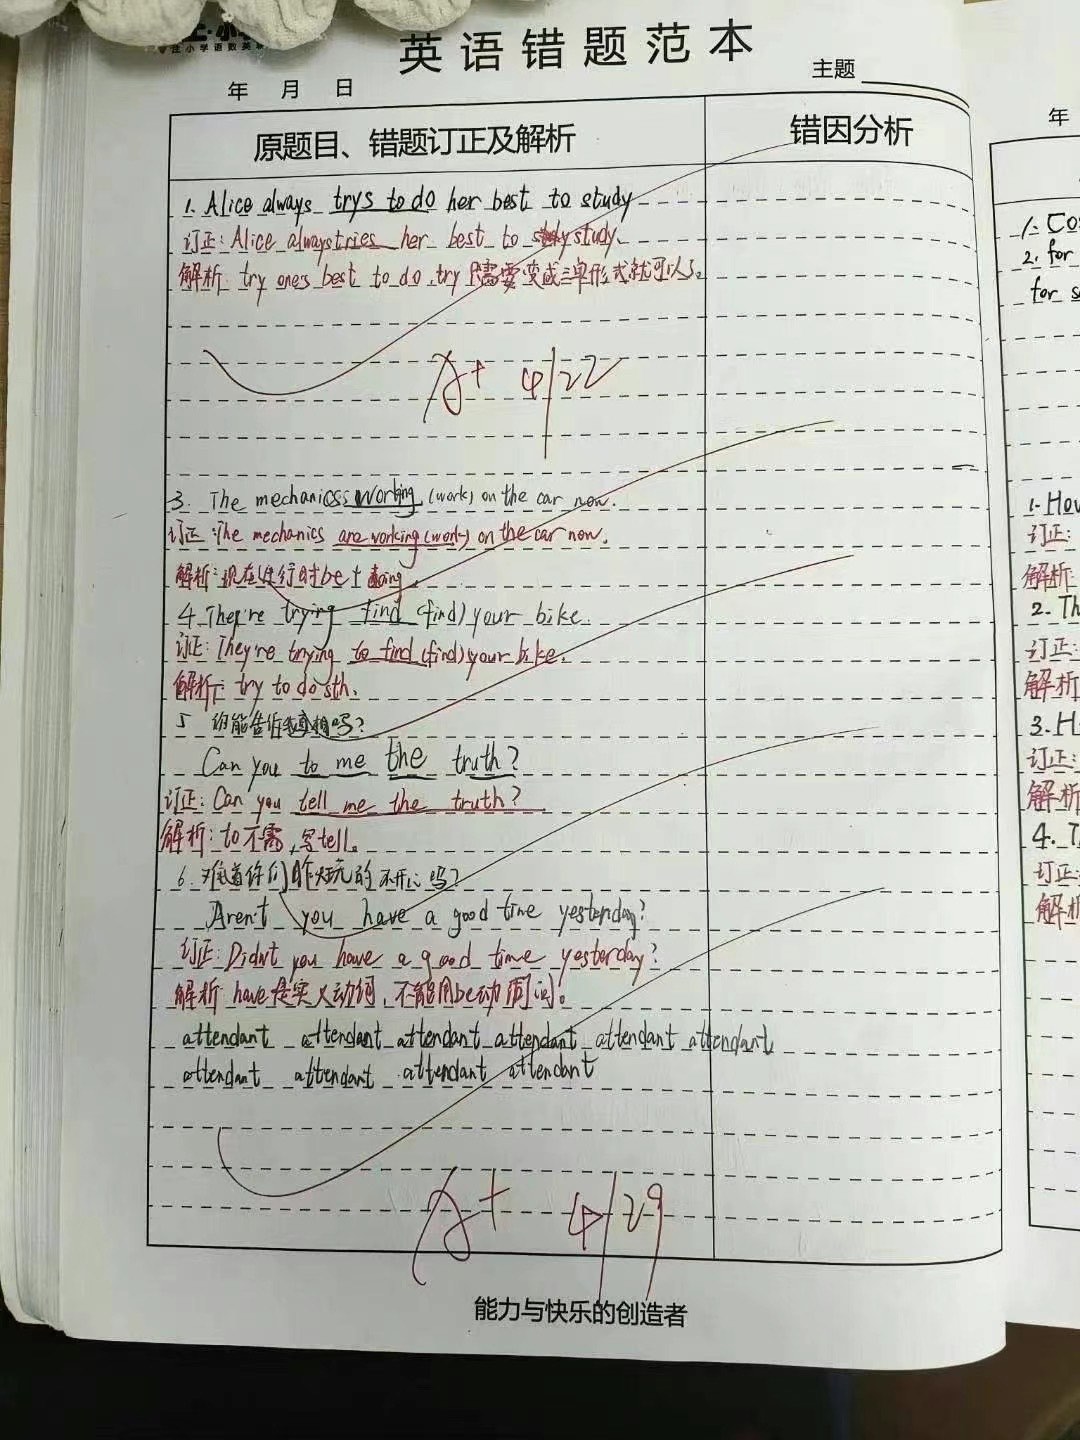 注小学语数英
英语错题范本
年 月 日
主题
原题目、错题订正及解析
错因分析
1. Alice always trys to do her best to study
订正: Alice always tries her best to study.
解析: try one's best to do, try只需要变成三单形式就可以了。
A+ 4/22
3. The mechanicss working (work) on the car now.
订正: The mechanics are working (work) on the car now.
解析: 现在进行时be+doing.
4. They're trying find (find) your bike.
订正: They're trying to find (find) your bike.
解析: try to do sth.
5 你能告诉我真相吗?
Can you to me the truth?
订正: Can you tell me the truth?
解析: to不需,写tell。
6. 难道你们昨天玩的不开心吗?
Aren't you have a good time yesterday?
订正: Didn't you have a good time yesterday?
解析 have是实义动词,不能用be动词问。
attendant attendant attendant attendant attendant attendant
attendant attendant attendant attendant
A+ 4/29
能力与快乐的创造者
年
1. Co
2. for
for s
1. How
订正:
解析:
2. Th
订正:
解析
3. H
订正:
解析
4. T
订正:
解析